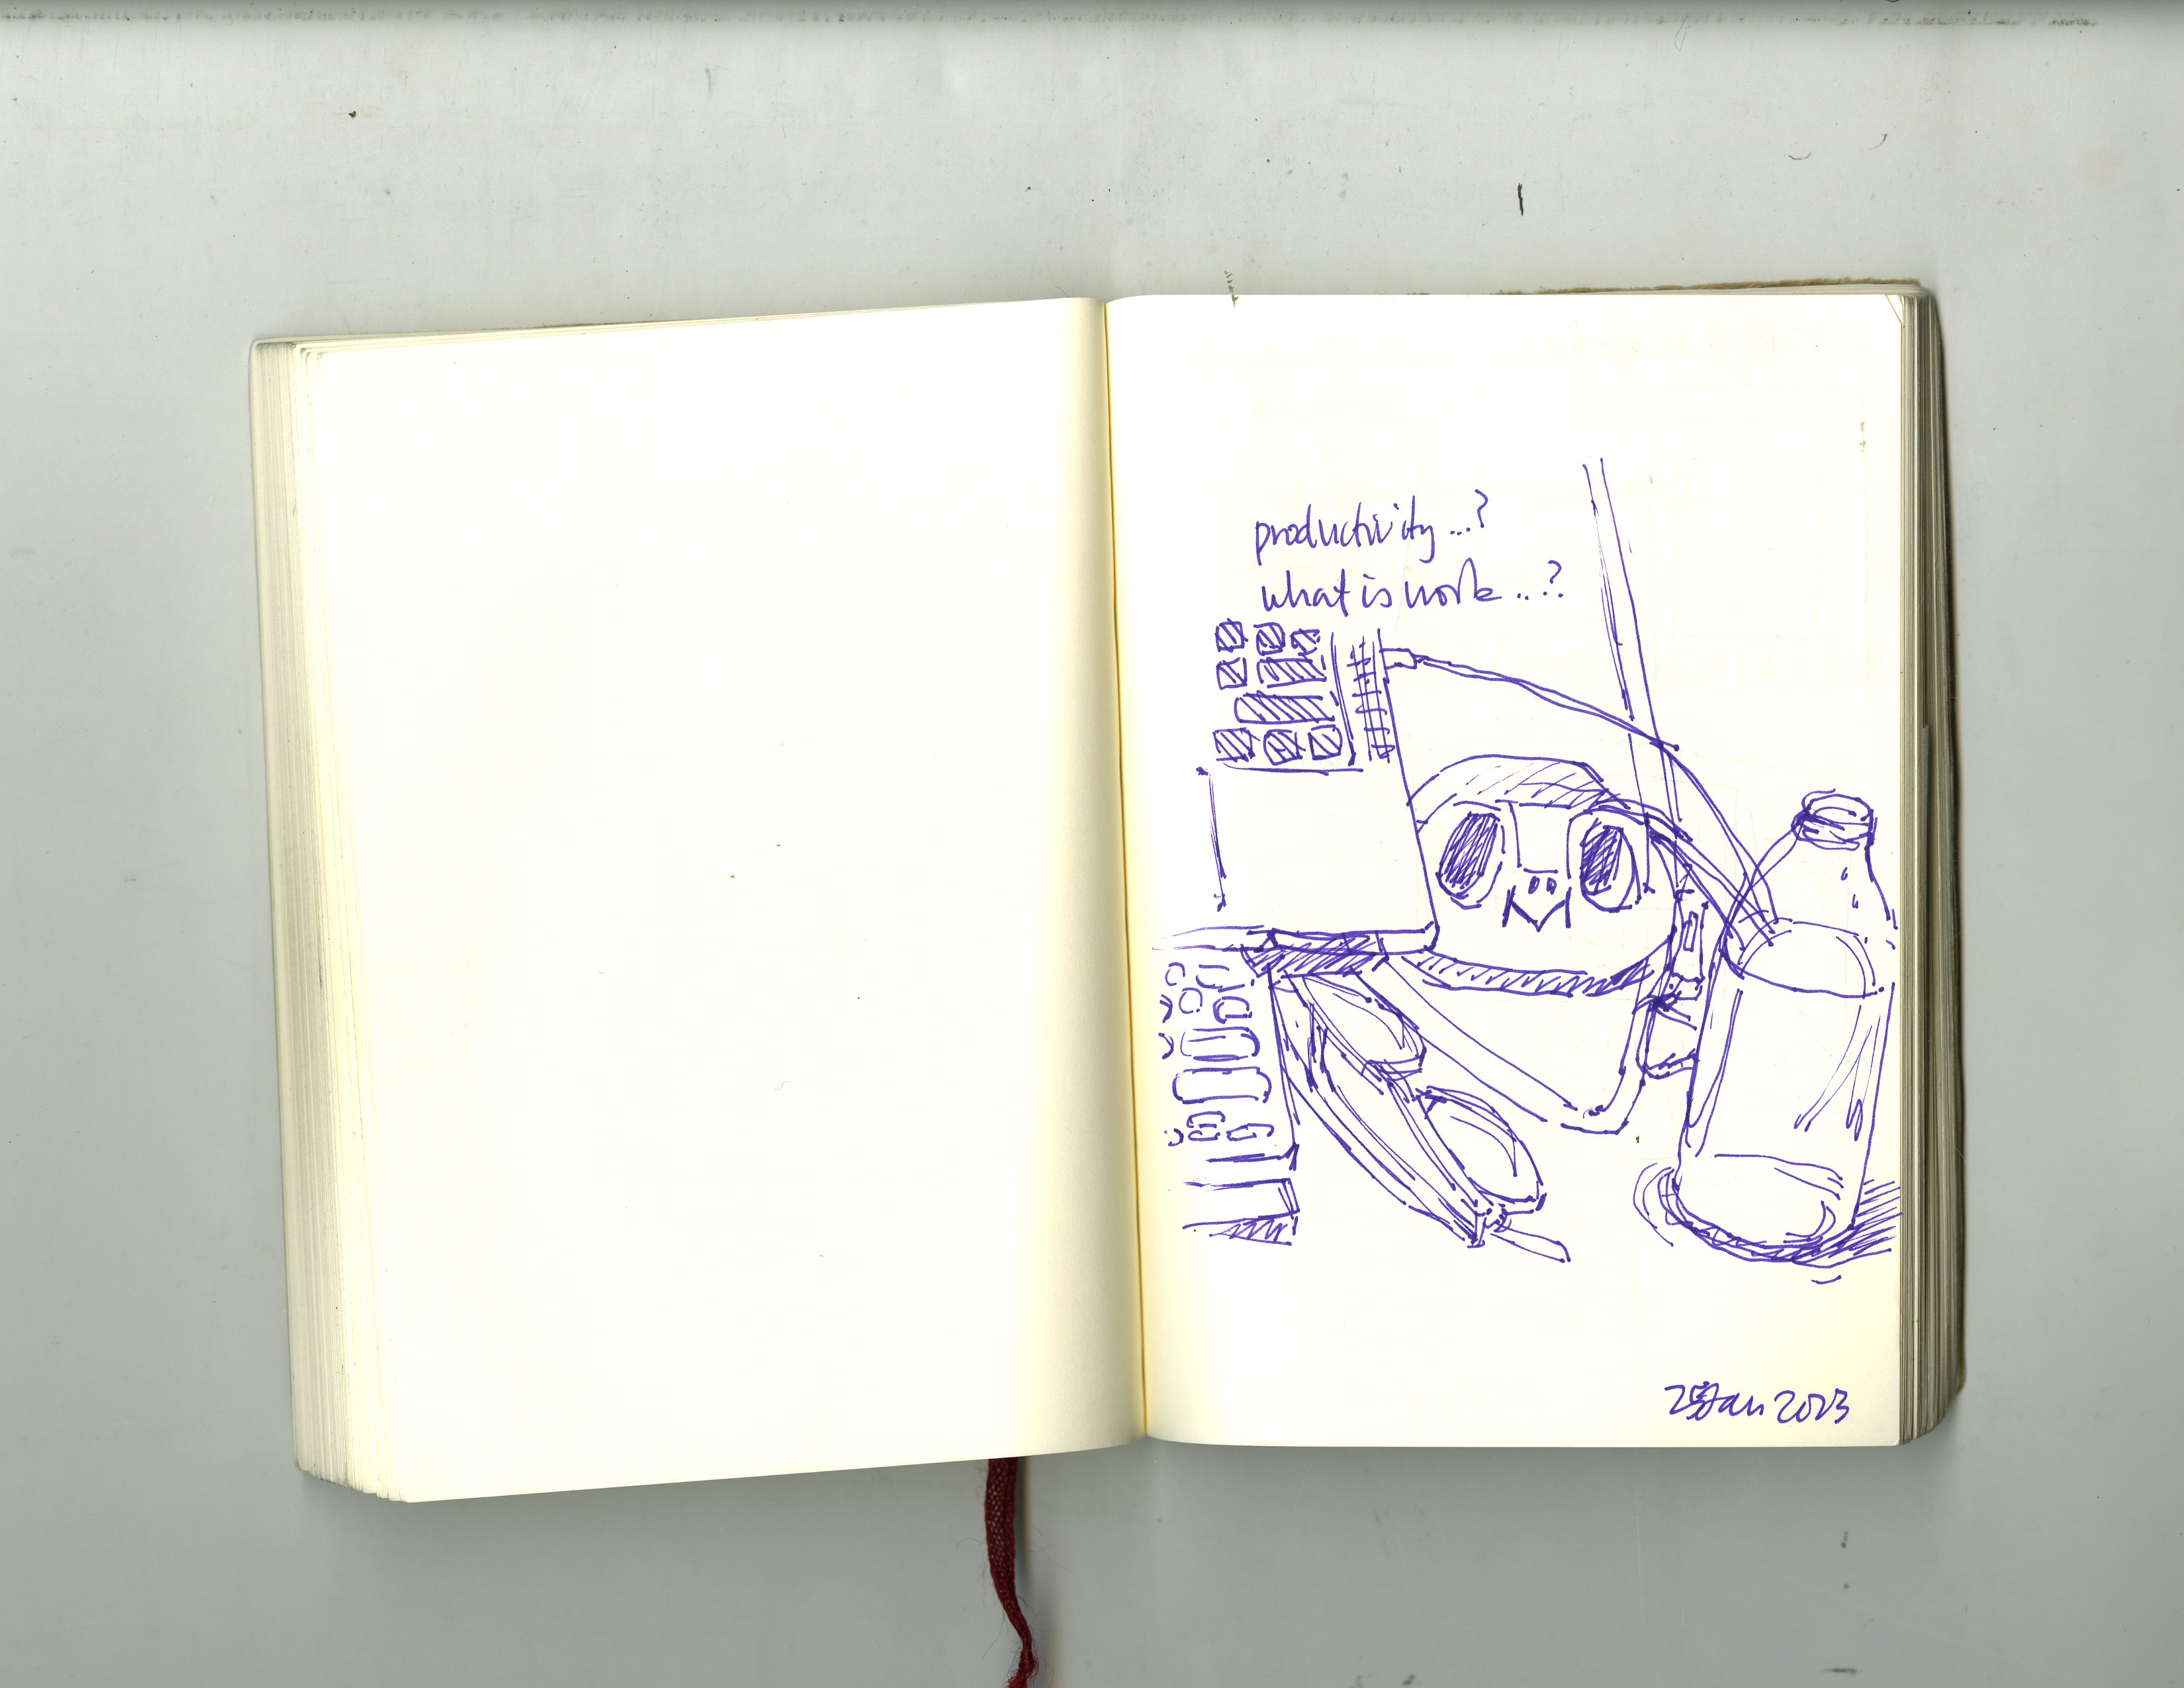 productivity...?
what is work...?
Jan 2023